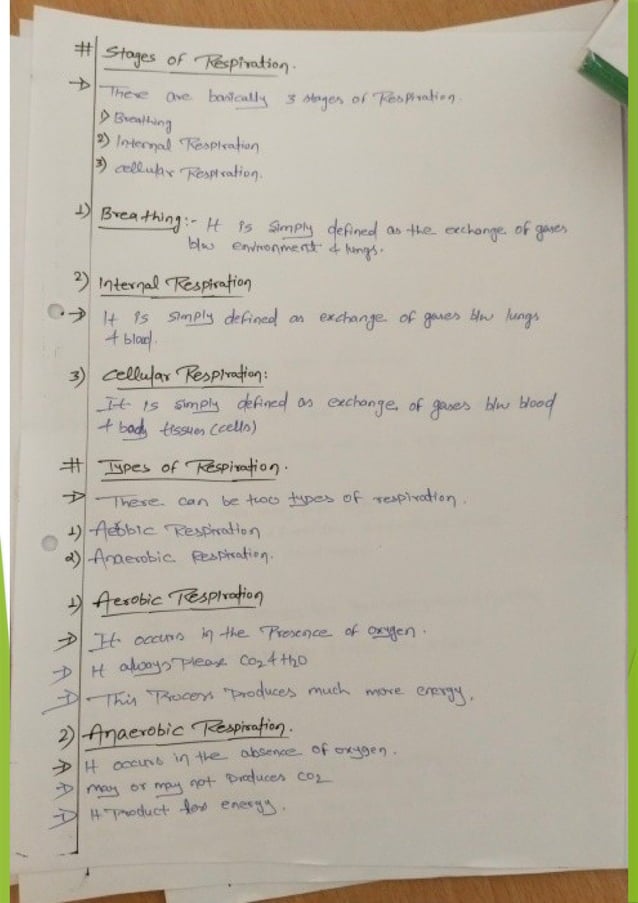 # Stages of Respiration.
→ There are basically 3 stages of Respiration.
1) Breathing
2) Internal Respiration
3) cellular Respiration.
1) Breathing:- It is simply defined as the exchange of gases
b/w environment & lungs.
2) Internal Respiration
→ It is simply defined as exchange of gases b/w lungs
& blood.
3) Cellular Respiration:
It is simply defined as exchange of gases b/w blood
& body tissues (cells)
# Types of Respiration.
→ There can be two types of respiration.
1) Aerobic Respiration
2) Anaerobic Respiration.
1) Aerobic Respiration
→ It occurs in the Presence of oxygen.
→ It always Please CO2 & H2O
→ This Process Produces much more energy.
2) Anaerobic Respiration.
→ It occurs in the absence of oxygen.
→ may or may not Produces CO2
→ It Product less energy.